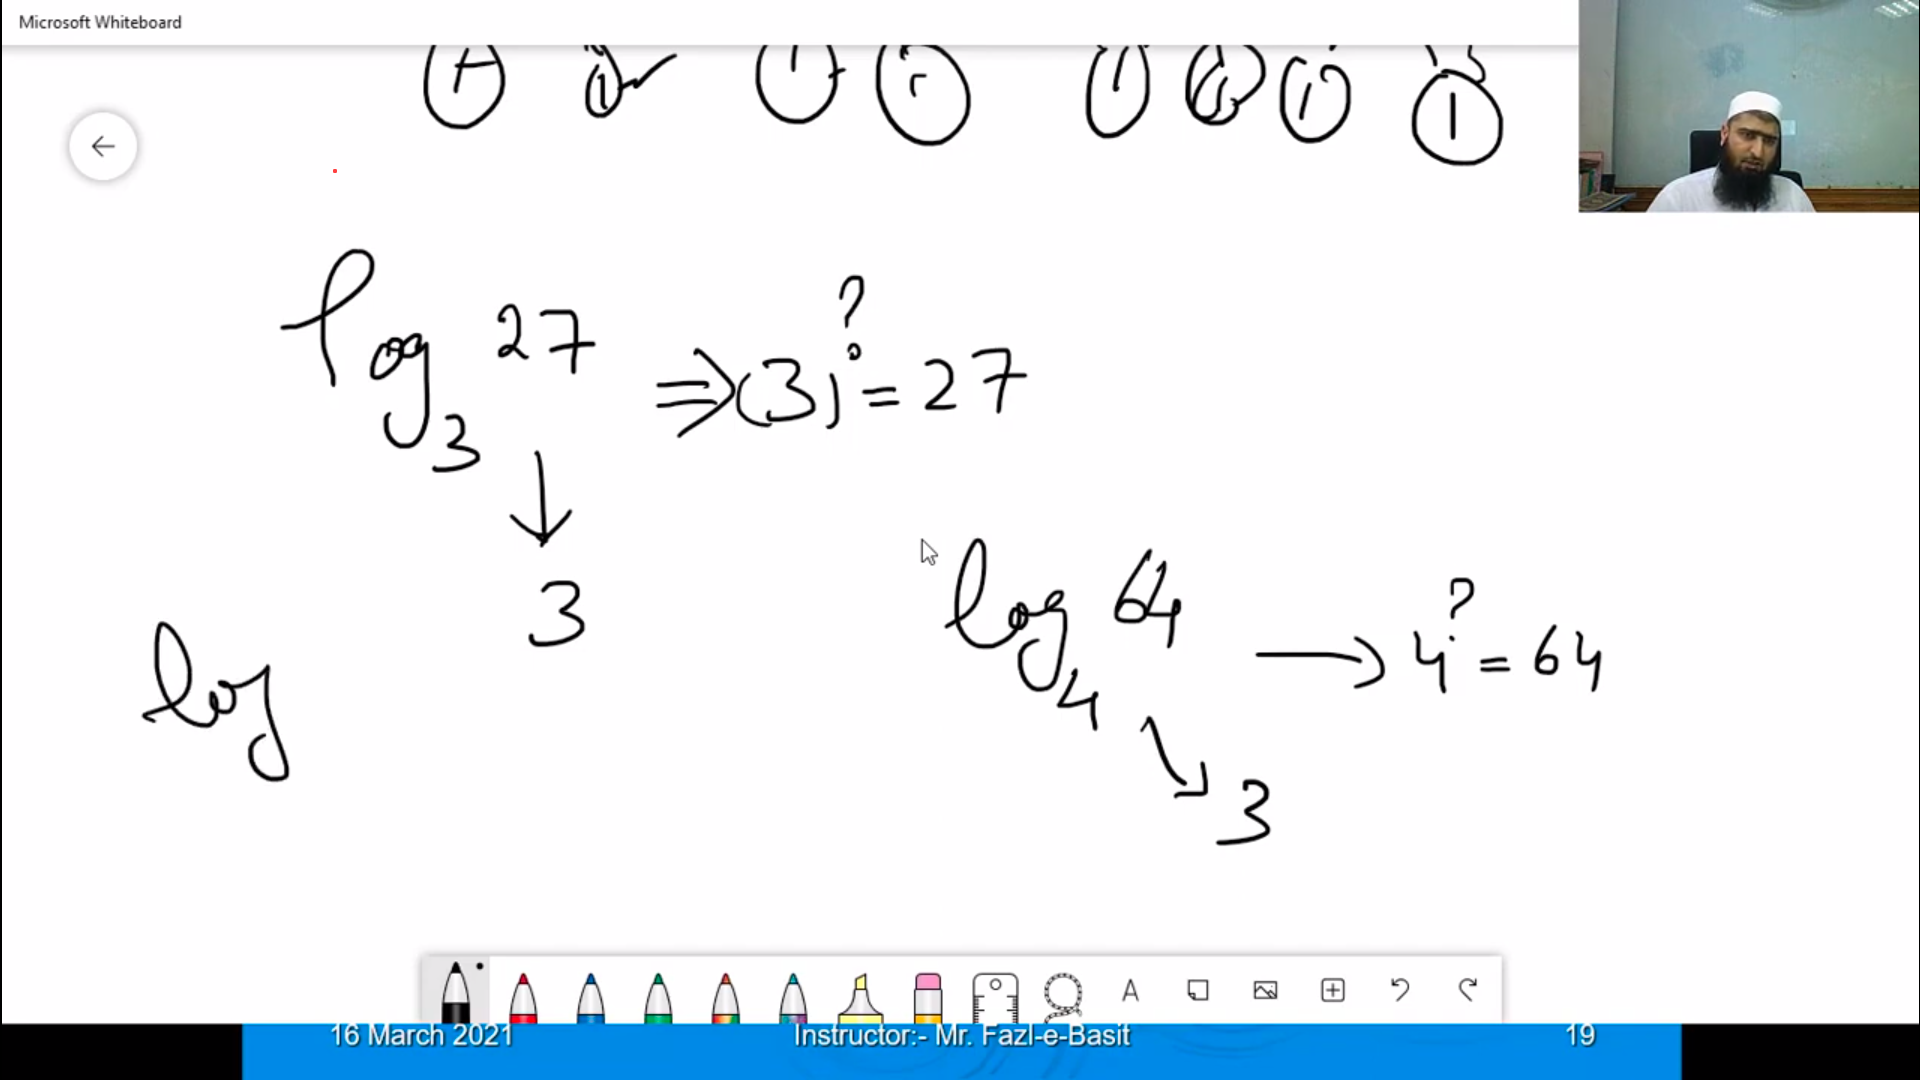 Microsoft Whiteboard
1 1 1 1 1 1
log₃ 27 ⇒ (3)^? = 27
↓
3
log₄ 64 → 4^? = 64
3
log
A
16 March 2021 Instructor:- Mr. Fazl-e-Basit 19